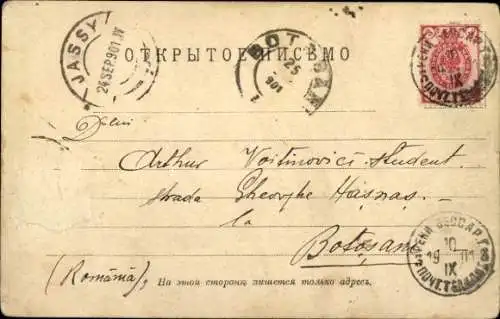 JASSY
24 SEP 901 IV
ОТКРЫТОЕ ПИСЬМО
BOTOSANI
25
901
IX
Dlui
Arthur Voitinovici student
strada Gheorghe
la
Botoșani
(România)
На этой сторонѣ пишется только адресъ.
БЕССАР.
10
19 01
IX